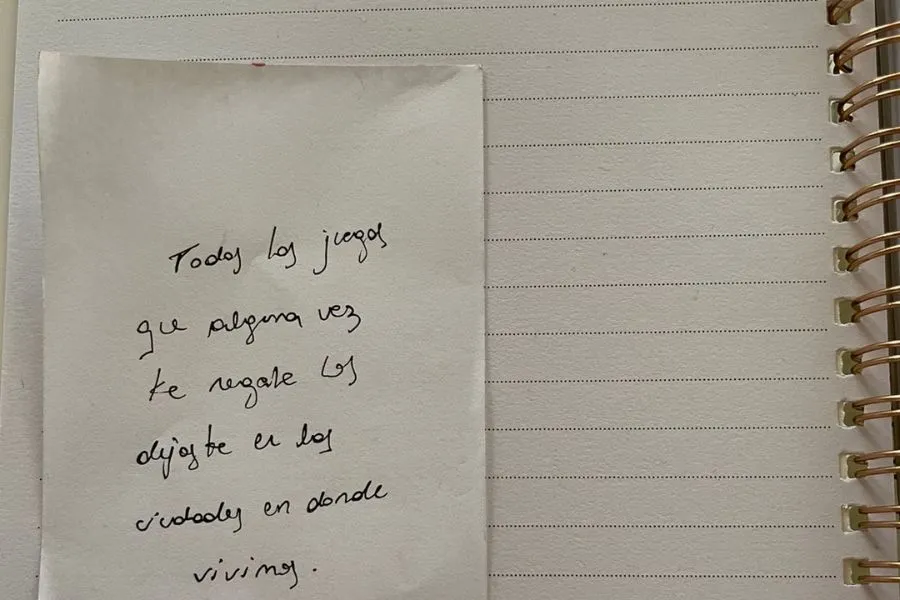 Todos los juegos
que alguna vez
te regale los
dejaste en las
ciudades en donde
vivimos.